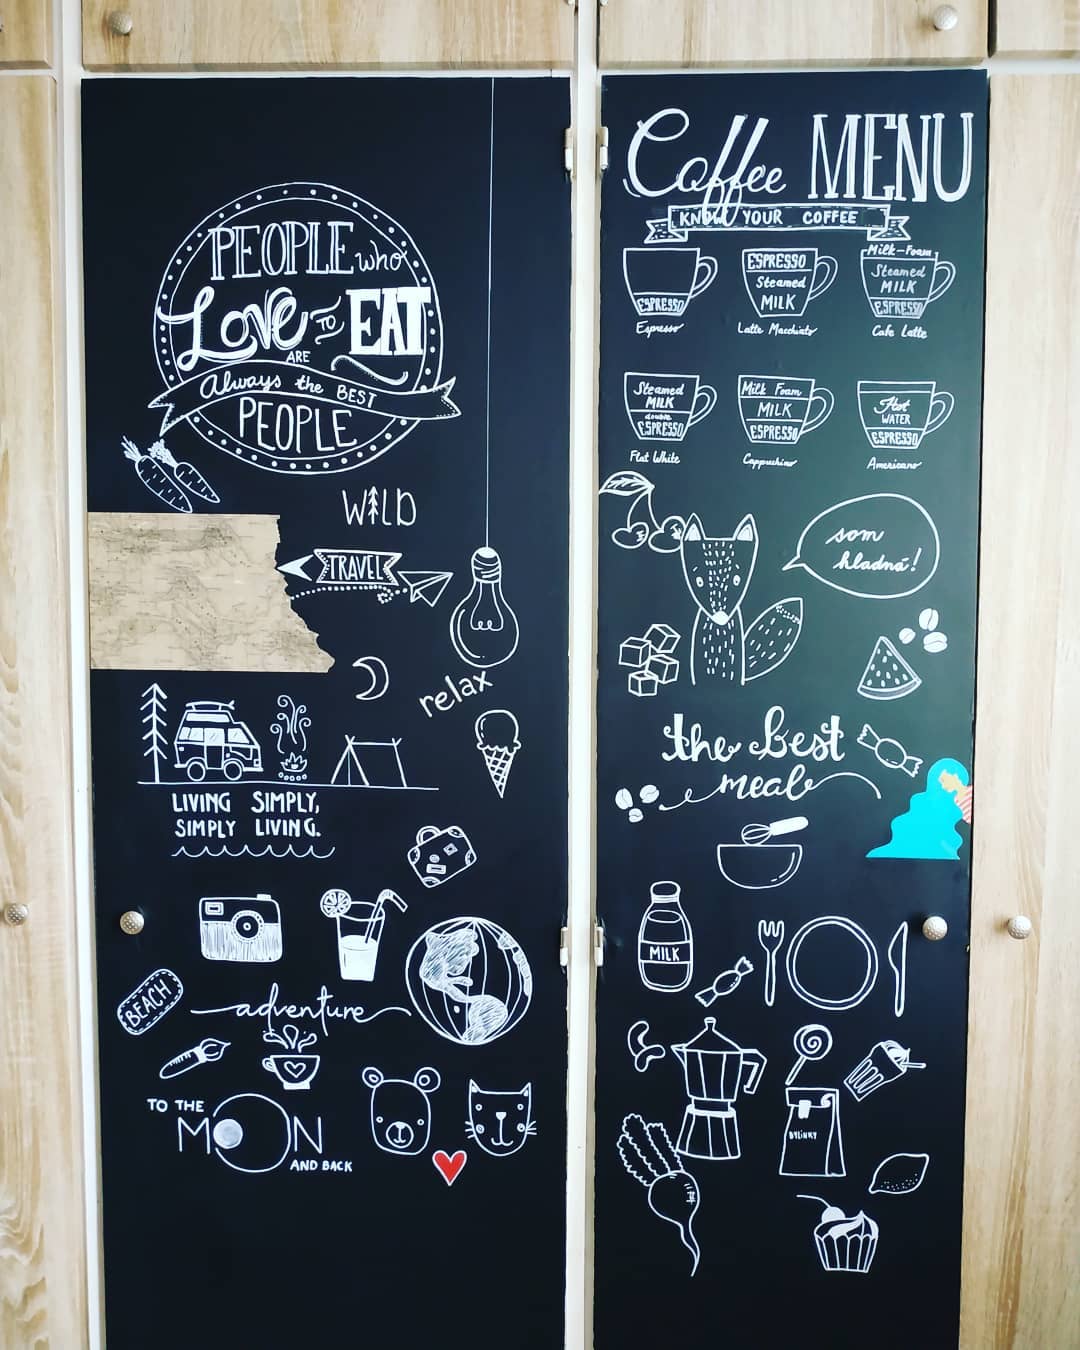 PEOPLE who
LOVE TO EAT
ARE
Always the BEST
PEOPLE
WILD
TRAVEL
relax
LIVING SIMPLY,
SIMPLY LIVING.
BEACH
adventure
TO THE
MOON
AND BACK
Coffee MENU
KNOW YOUR COFFEE
ESPRESSO
Espresso
ESPRESSO
Steamed
MILK
Latte Macchiato
Milk-Foam
Steamed
MILK
ESPRESSO
Cafe Latte
Steamed
MILK
double
ESPRESSO
Flat White
Milk Foam
MILK
ESPRESSO
Cappuchino
Hot
WATER
ESPRESSO
Americano
som
hladná!
the best
meal
MILK
BYLiNKY